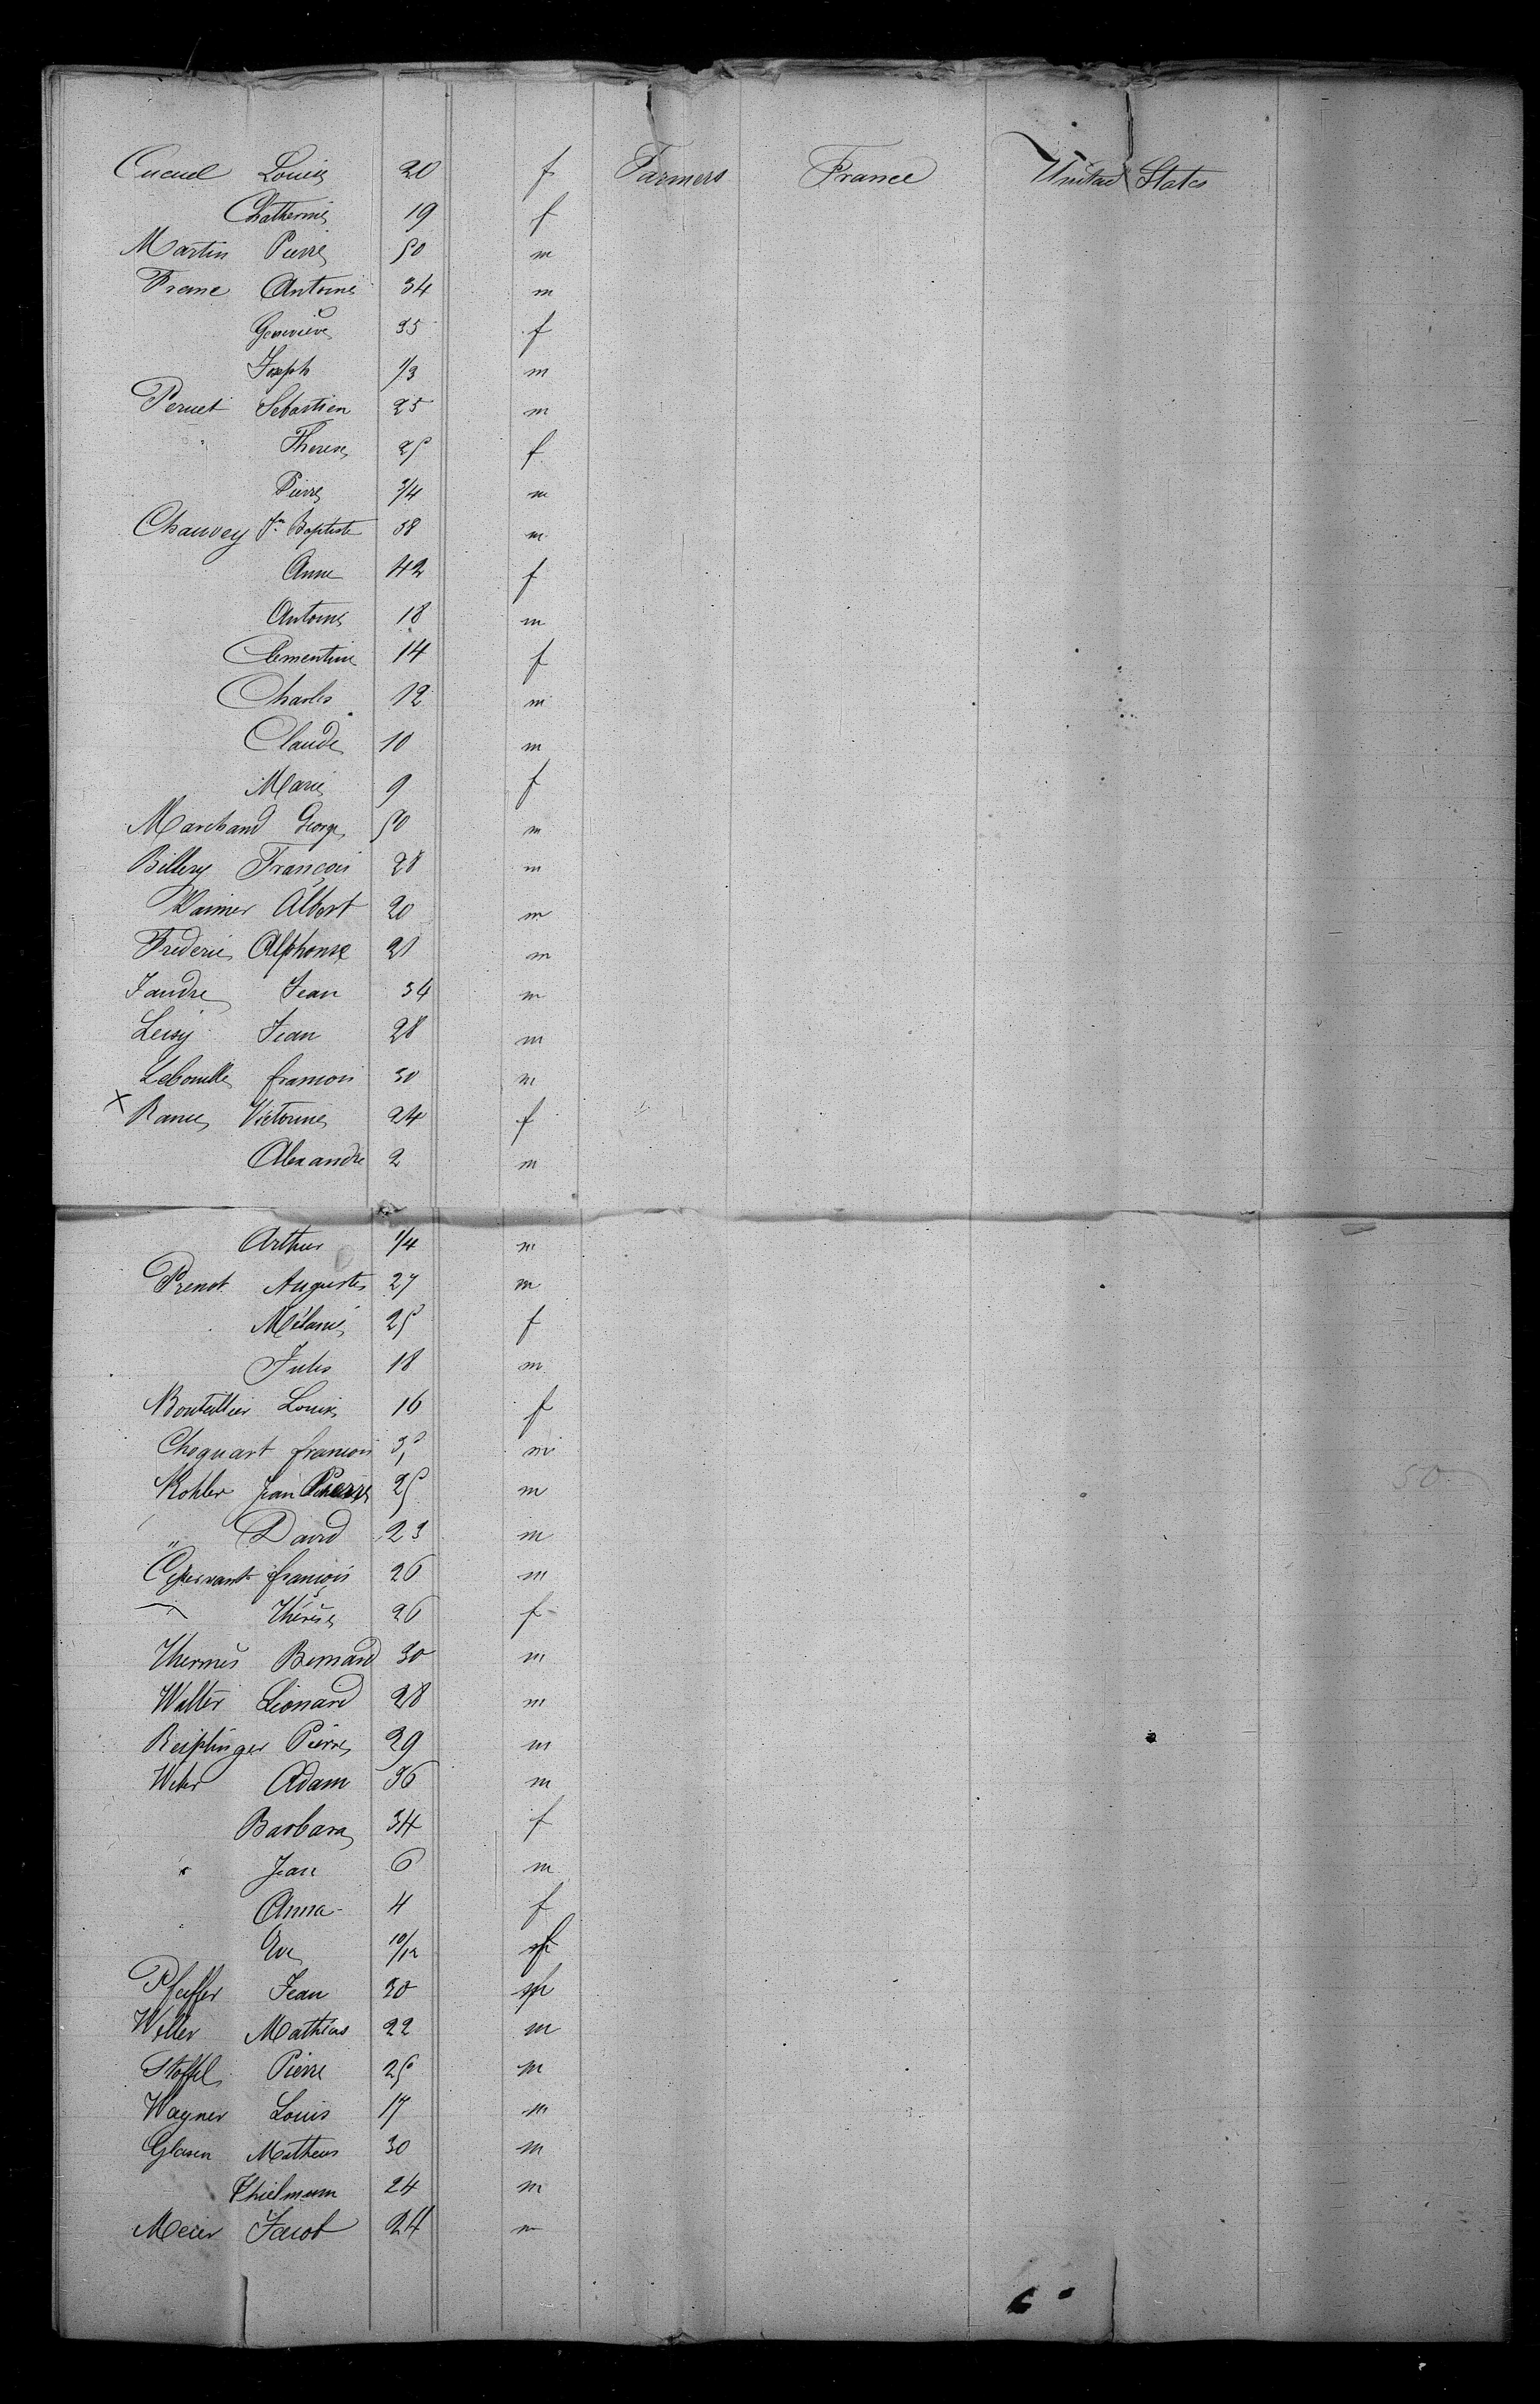 Cucuel Louise 20 f Farmers France United States
Chatherine 19 f
Martin Pierre 50 m
Franc Antoine 34 m
Genevieve 35 f
Joseph 1/3 m
Pernet Sebastien 25 m
Therese 25 f
Pierre 3/4 m
Chauvey Jn Baptiste 38 m
Anne 42 f
Antoine 18 m
Clementine 14 f
Charles 12 m
Claude 10 m
Marie 9 f
Marchand George 50 m
Billery François 28 m
Albert 20 m
Frederic Alphonse 21 m
Jaudre Jean 34 m
Jean 28 m
francois 30 m
x Rance Victorine 24 f
Alexandre 2 m
Arthur 1/4 m
Prenot Auguste 27 m
Mélanie 25 f
Jules 18 m
Louise 16 f
Choquart francois 35 m
Kohler Jean Pierre 25 m
" David 23 m
françois 26 m
Thérèse 26 f
Thermes Bernard 30 m
Walter Léonard 28 m
Reiplinger Pierre 29 m
Weber Adam 36 m
Barbara 34 f
" Jean 6 m
Anna 4 f
Eve 10/12 f
Pfeiffer Jean 30 m
Weller Mathias 22 m
Stoffel Pierre 25 m
Wagner Louis 17 m
Mathieus 30 m
Thielmann 24 m
Meier Jacob 24 m
50